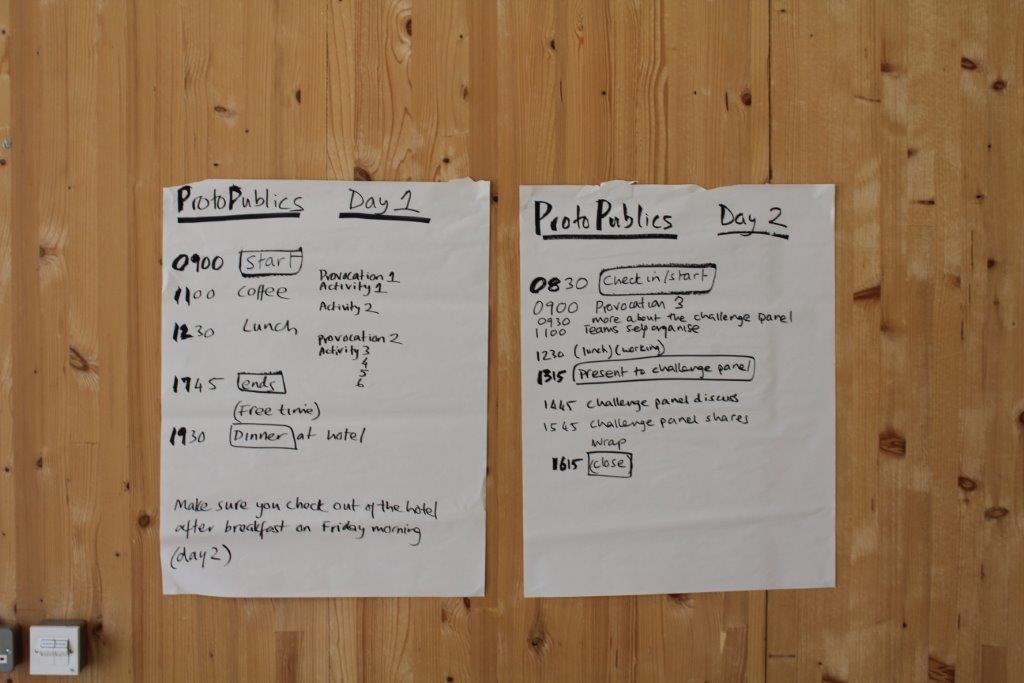 ProtoPublics Day 1
0900 Start
Provocation 1
Activity 1
1100 coffee
Activity 2
1230 Lunch
Provocation 2
Activity 3
4
5
6
1745 ends
(Free time)
1930 Dinner at hotel
Make sure you check out of the hotel
after breakfast on Friday morning
(day 2)
ProtoPublics Day 2
0830 Check in/start
0900 Provocation 3
0930 more about the challenge panel
1100 Teams self organise
1230 (lunch) (working)
1315 Present to challenge panel
1445 challenge panel discuss
1545 challenge panel shares
wrap
1615 close